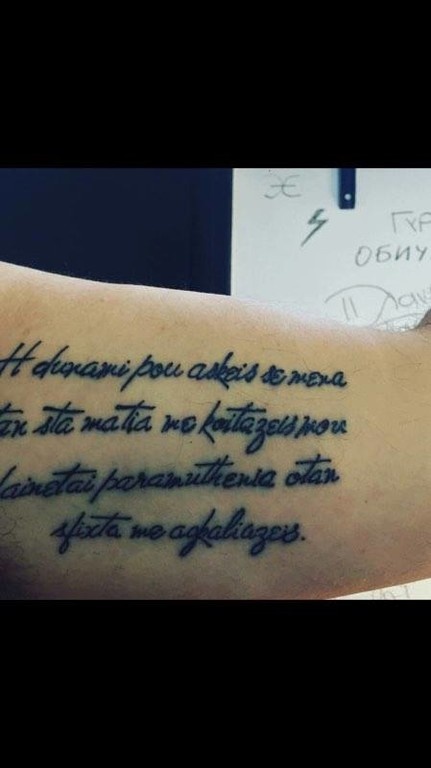 Э€
ГУР
ОБИЧ
H dunami pou askeis se mena
tan sta matia me koitazeis mou
fainetai paramuthenia otan
sfixta me agkaliazeis.